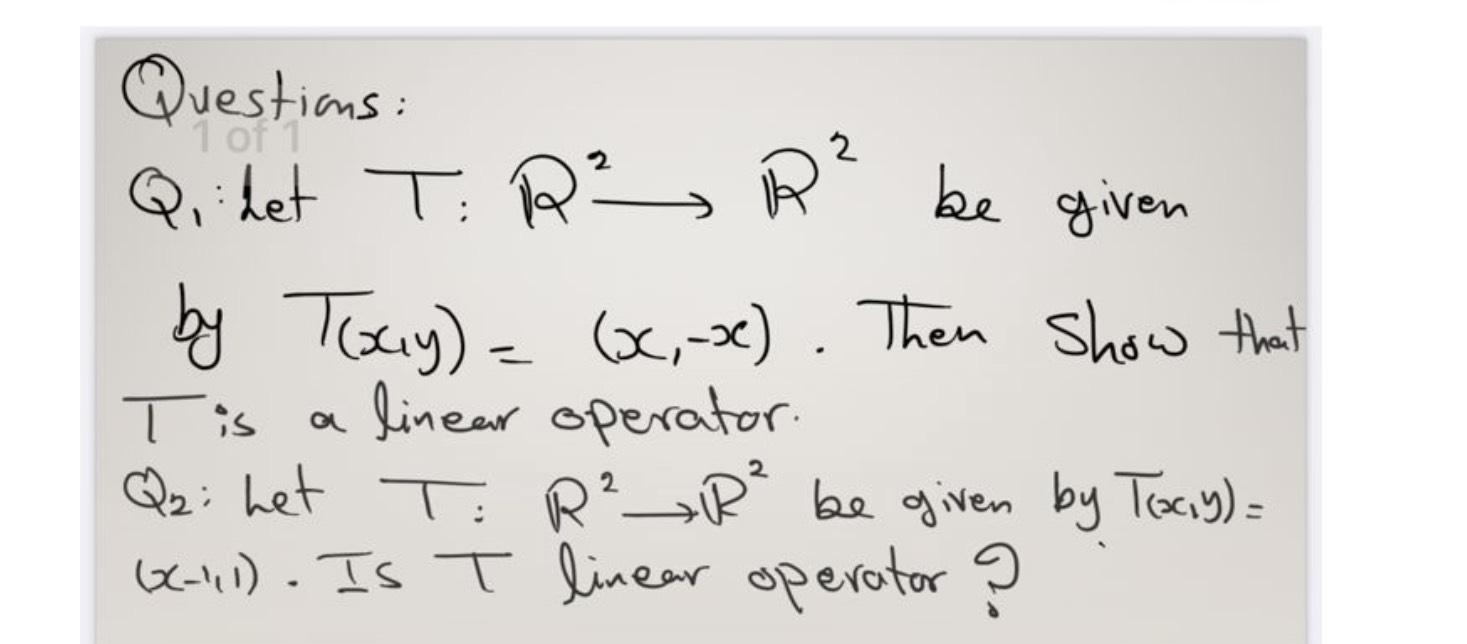 Questions:
1 of 1
Q1: Let T: ℝ² → ℝ² be given
by T(x,y) = (x,-x). Then Show that
T is a linear operator.
Q2: Let T: ℝ² → ℝ² be given by T(x,y) =
(x-1,1). Is T linear operator?